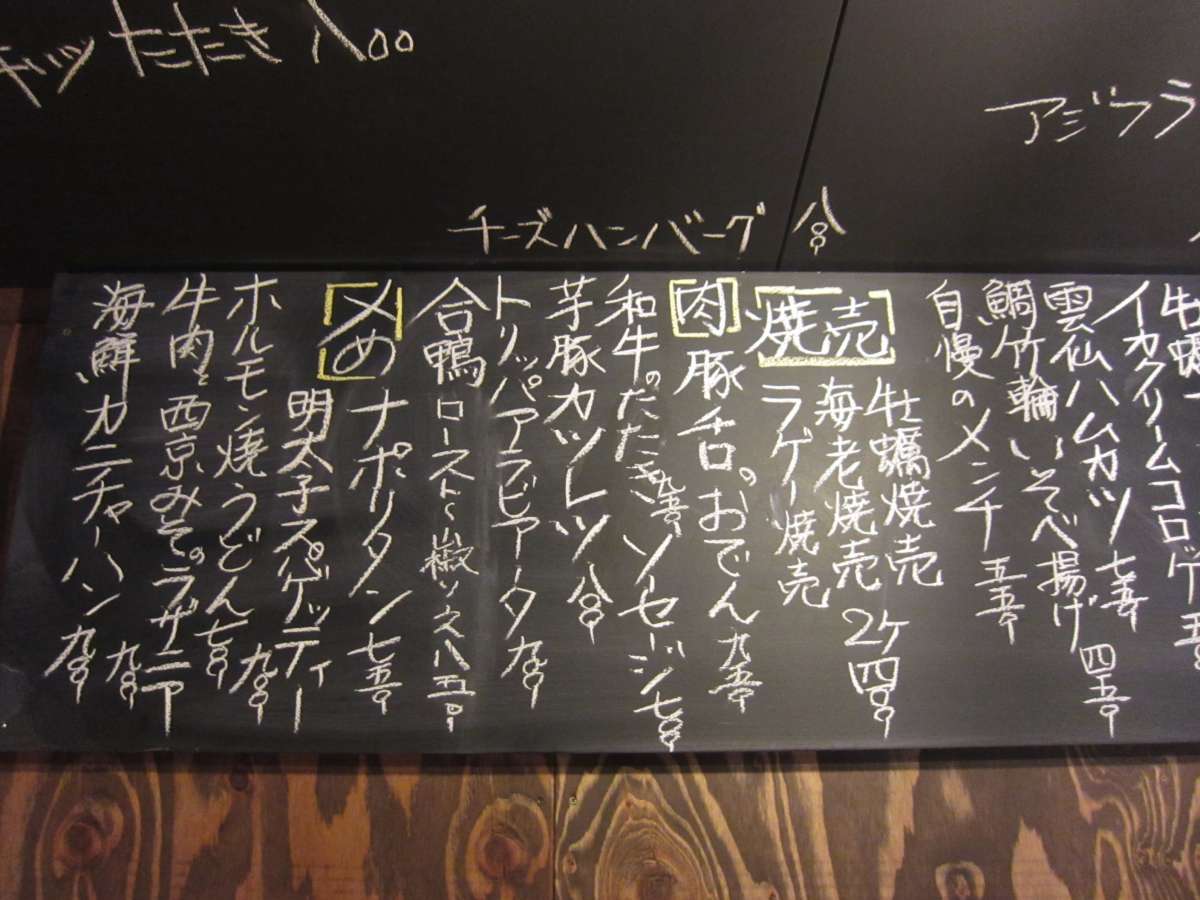 たたき 八〇〇
アジフラ
チーズハンバーグ 八〇〇
イカクリームコロッケ 五
雲仙ハムカツ 七五〇
鯛竹輪いそべ揚げ 四五〇
自慢のメンチ 五五〇
焼売
牡蠣焼売
海老焼売 2ケ四〇〇
ラゲー焼売
肉
豚チロのおでん 九五〇
和牛のたたき ソーセージ 七〇〇
芋豚カツレツ 八〇〇
トリッパアラビアータ 九〇〇
合鴨ロースト〜山椒ソース 八五〇
〆め
ナポリタン 七五〇
明太子スパゲッティー 九〇〇
ホルモン焼うどん 七〇〇
牛肉と西京みそのラザニア 九〇〇
海鮮カニチャーハン 九〇〇